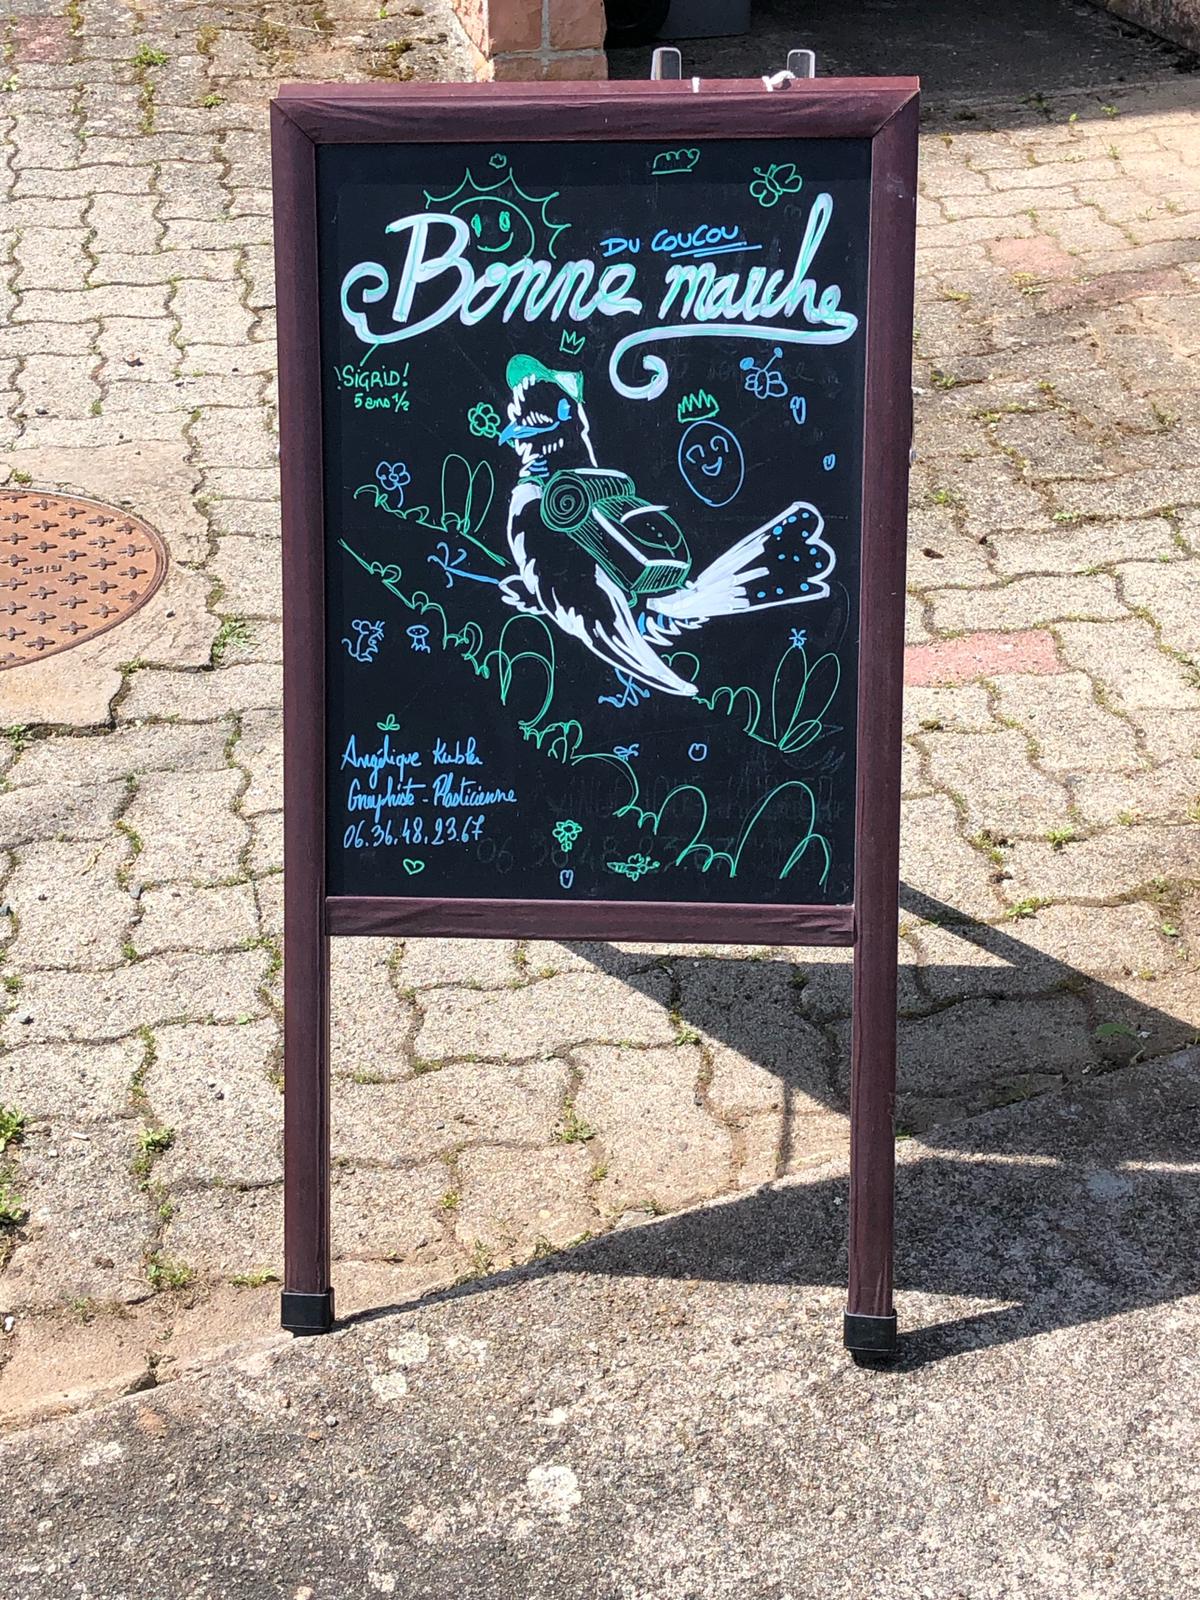 DU COUCOU
Bonne marche
!SIGRID!
5 ans 1/2
Angélique Kubler
Graphiste - Plasticienne
06.36.48.23.67